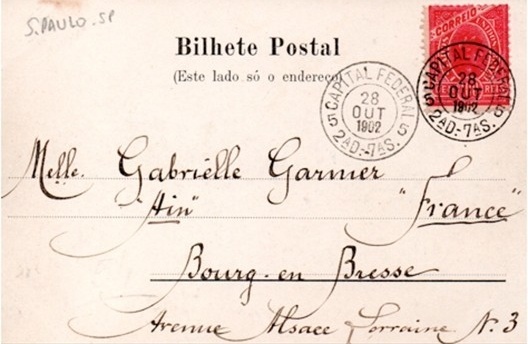 S. PAULO. SP
Bilhete Postal
(Este lado só o endereço)
CORREIO
CAPITAL FEDERAL
28
OUT
1902
5 2ª D.-7ª S. 5
CAPITAL FEDERAL
28
OUT
1902
5 2ª D.-7ª S. 5
Melle. Gabriélle Garnier
"Ain" "France"
Bourg-en Bresse
Avenue Alsace Lorraine N. 3